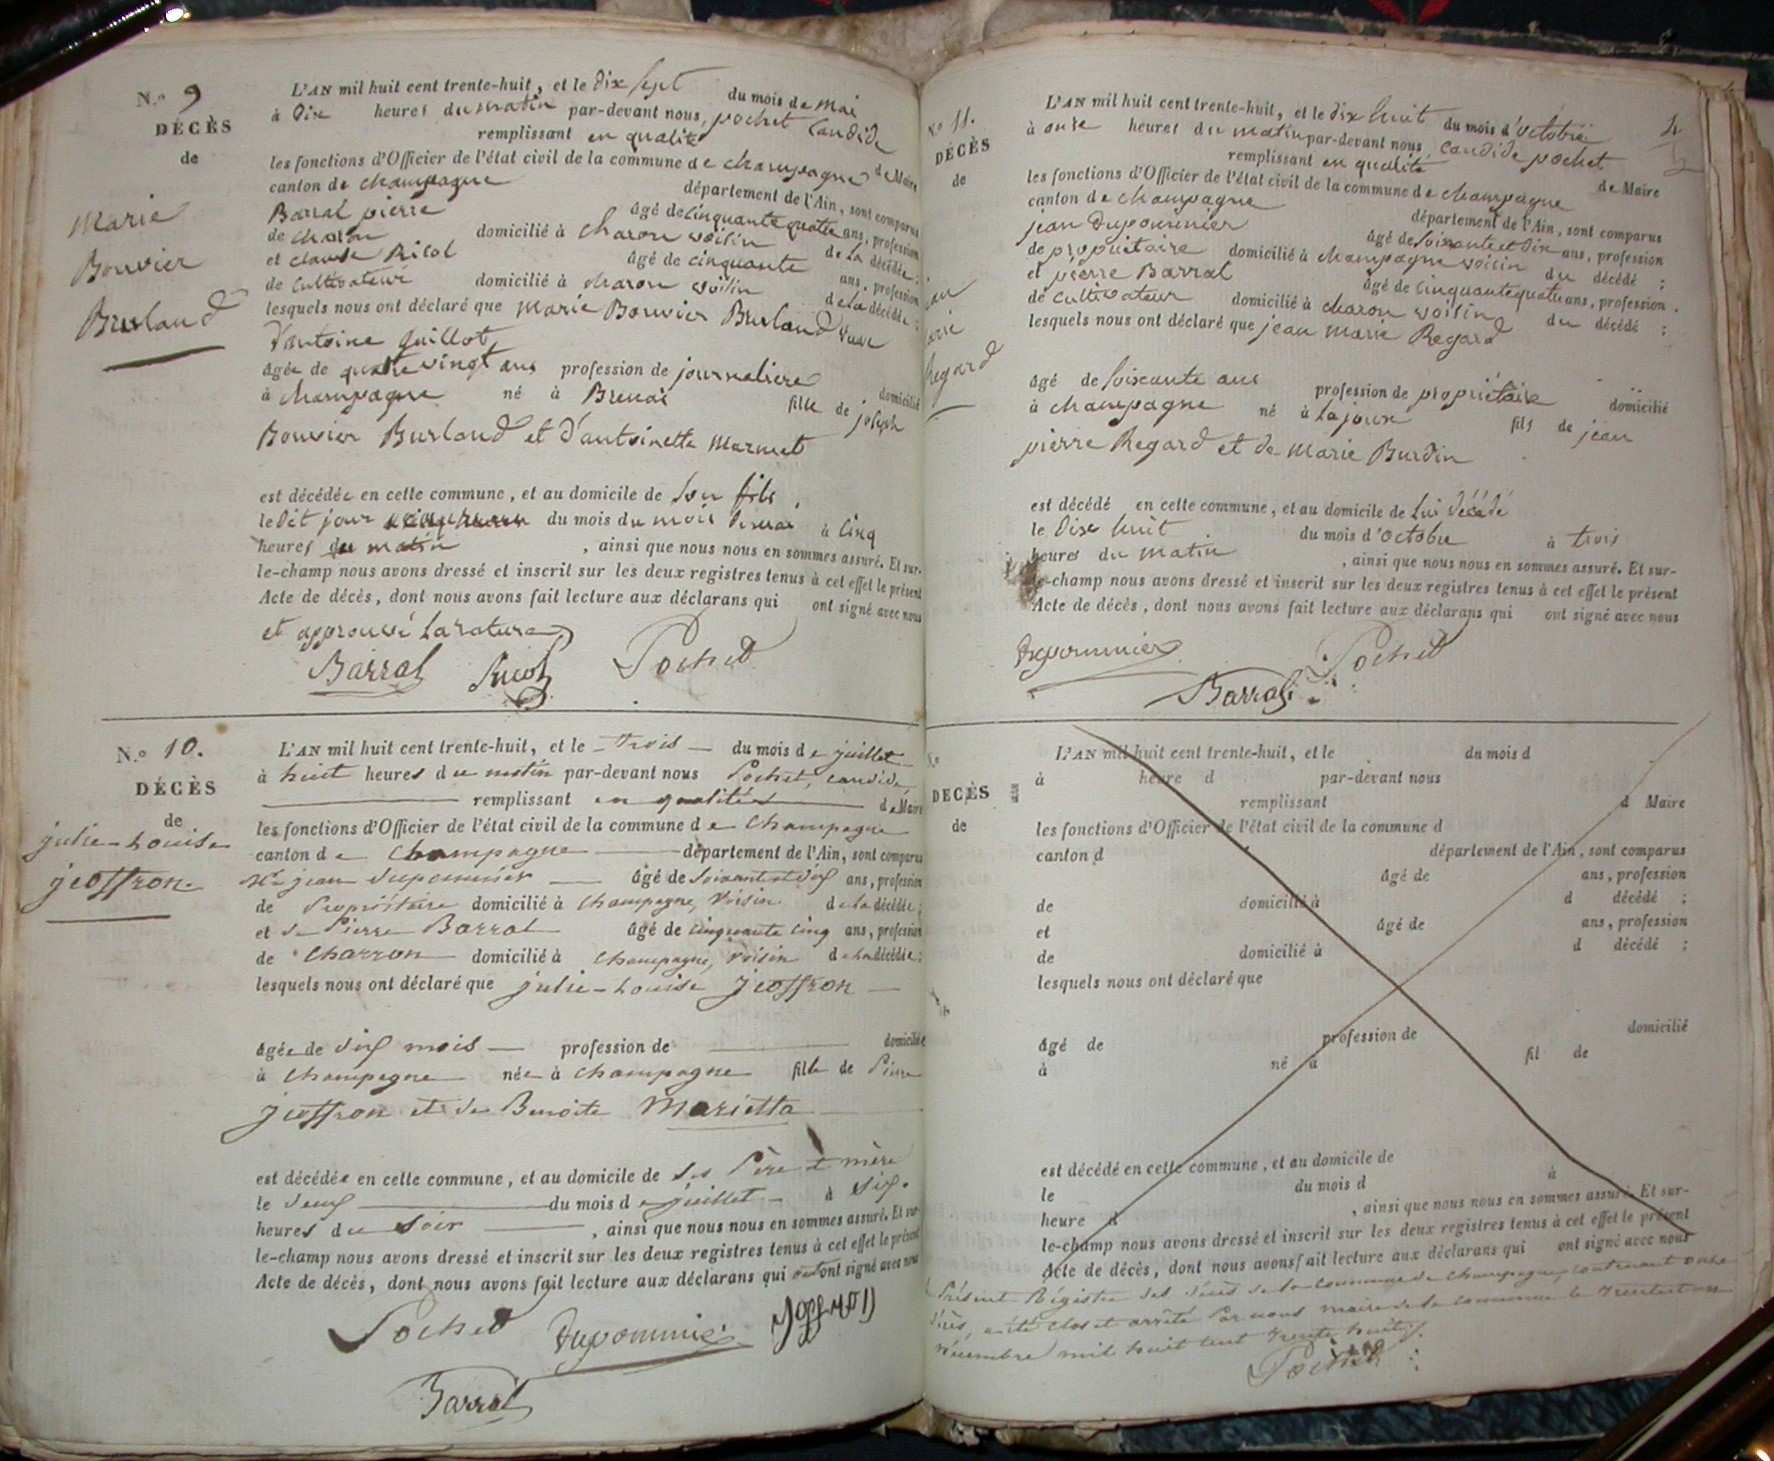 N.o 9
DÉCÈS
de
Marie
Bouvier
Burland
L'AN mil huit cent trente-huit, et le dix sept du mois de mai
à dix heures du matin par-devant nous, pochet Candide
remplissant en qualité de Maire
les fonctions d'Officier de l'état civil de la commune de champagne
canton de champagne département de l'Ain, sont comparus
Barral pierre âgé de cinquante quatre ans, profession
de charon domicilié à charon voisin de la décédée ;
et claude Ricol âgé de cinquante ans, profession
de cultivateur domicilié à charon voisin de la décédée ;
lesquels nous ont déclaré que Marie Bouvier Burland veuve
d'antoine Guillot
âgée de quatre vingt ans profession de journaliere domicilié
à champagne né à Brenai fille de joseph
Bouvier Burland et d'antoinette Marmet
est décédée en cette commune, et au domicile de son fils,
le dit jour du mois du mois de mai à cinq
heures du matin, ainsi que nous nous en sommes assuré. Et sur-
le-champ nous avons dressé et inscrit sur les deux registres tenus à cet effet le présent
Acte de décès, dont nous avons fait lecture aux déclarans qui ont signé avec nous
et approuvé la rature
Barral Ricol Pochet
N.o 10.
DÉCÈS
de
julie-Louise
jeoffron.
L'AN mil huit cent trente-huit, et le trois du mois de juillet
à huit heures du matin par-devant nous Pochet, candide,
remplissant en qualités de Maire
les fonctions d'Officier de l'état civil de la commune de Champagne
canton de Champagne département de l'Ain, sont comparus
Mr jean Dupommier âgé de soixante et dix ans, profession
de Propriétaire domicilié à Champagne, Voisin de la décédée ;
et de Pierre Barral âgé de cinquante cinq ans, profession
de Charron domicilié à Champagne, voisin de la décédée ;
lesquels nous ont déclaré que julie-Louise jeoffron
âgée de six mois profession de domicilié
à Champagne née à Champagne fille de Pierre
jeoffron et de Benoite Marietta
est décédée en cette commune, et au domicile de ses Père et mère
le deux du mois de juillet à six.
heures du soir, ainsi que nous nous en sommes assuré. Et sur-
le-champ nous avons dressé et inscrit sur les deux registres tenus à cet effet le présent
Acte de décès, dont nous avons fait lecture aux déclarans qui ont signé avec nous
Pochet Dupommier
Barral
No 11.
DÉCÈS
de
Regard
L'AN mil huit cent trente-huit, et le dix huit du mois d'octobre
à onze heures du matin par-devant nous, candide pochet
remplissant en qualité de Maire
les fonctions d'Officier de l'état civil de la commune de champagne
canton de champagne département de l'Ain, sont comparus
jean Dupommier âgé de soixante et dix ans, profession
de propriétaire domicilié à champagne voisin du décédé ;
et pierre Barral âgé de cinquante quatre ans, profession
de cultivateur domicilié à charon voisin du décédé ;
lesquels nous ont déclaré que jean marie Regard
âgé de soixante ans profession de propriétaire domicilié
à champagne né à Lajoux fils de jean
pierre Regard et de Marie Burdin
est décédé en cette commune, et au domicile de lui décédé
le dix huit du mois d'octobre à trois
heures du matin, ainsi que nous nous en sommes assuré. Et sur-
le-champ nous avons dressé et inscrit sur les deux registres tenus à cet effet le présent
Acte de décès, dont nous avons fait lecture aux déclarans qui ont signé avec nous
Dupommier Pochet
Barral
No
DÉCÈS
de
L'AN mil huit cent trente-huit, et le du mois d
à heure d par-devant nous
remplissant d Maire
les fonctions d'Officier de l'état civil de la commune d
canton d département de l'Ain, sont comparus
âgé de ans, profession
de domicilié à d décédé ;
et âgé de ans, profession
de domicilié à d décédé ;
lesquels nous ont déclaré que
âgé de profession de domicilié
à né à fil de
est décédé en cette commune, et au domicile de
le du mois d à
heure d, ainsi que nous nous en sommes assuré. Et sur-
le-champ nous avons dressé et inscrit sur les deux registres tenus à cet effet le présent
Acte de décès, dont nous avons fait lecture aux déclarans qui ont signé avec nous
Présent Régistre des décès de la commune de Champagne, contenant onze
décès, a été clos et arrêté Par nous maire de la commune le trente et un
décembre mil huit cent trente huit.
Pochet